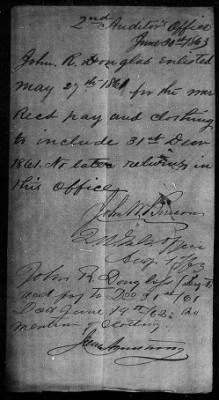 2nd Auditor's Office
June 30th 1863
John R. Douglas enlisted
May 27th 1861 for the war
Recd pay and clothing
to include 31st Decr
1861. No later returns in
this Office
John W.
Aug. 1/63
John R. Douglass
paid pay to Dec 31st /61
Died June 19th /62. no
mention of clothing.